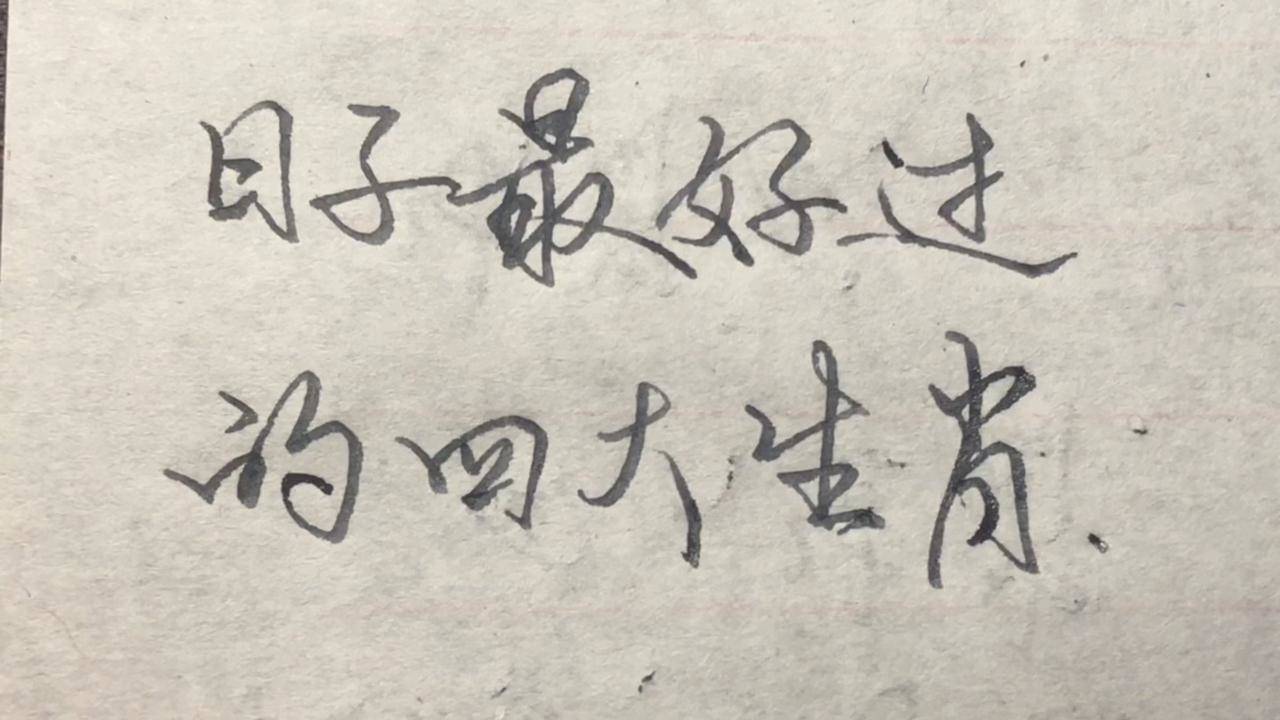 日子最好过
的四大生肖.